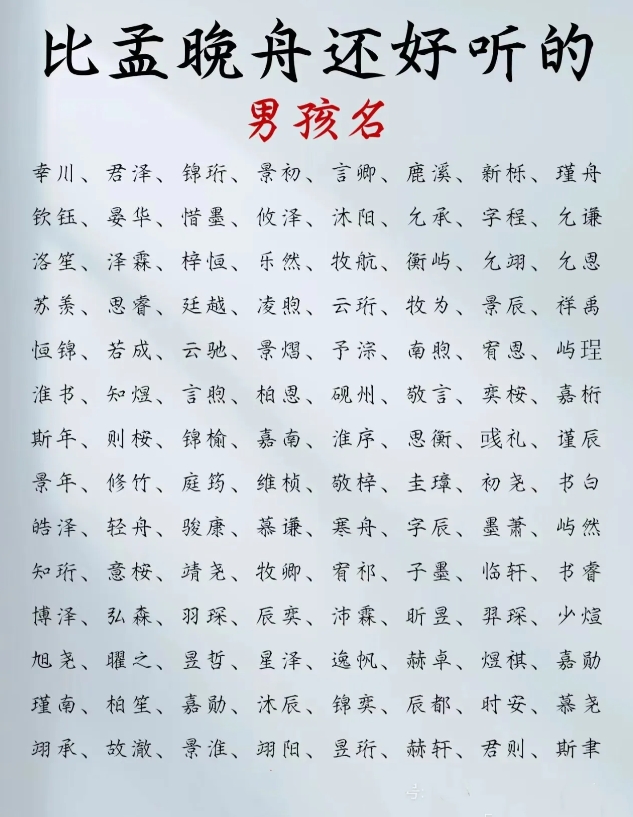 比孟晚舟还好听的
男孩名
幸川、君泽、锦珩、景初、言卿、鹿溪、新栎、瑾舟
钦钰、晏华、惜墨、攸泽、沐阳、允承、字程、允谦
洛笙、泽霖、梓恒、乐然、牧航、衡屿、允翊、允恩
苏羡、思睿、廷越、凌煦、云珩、牧为、景辰、祥禹
恒锦、若成、云驰、景熠、予淙、南煦、宥恩、屿珵
淮书、知煜、言煦、柏恩、砚州、敬言、奕桉、嘉桁
斯年、则桉、锦榆、嘉南、淮序、思衡、彧礼、瑾辰
景年、修竹、庭筠、维桢、敬梓、圭璋、初尧、书白
皓泽、轻舟、骏康、慕谦、寒舟、字辰、墨萧、屿然
知珩、意桉、靖尧、牧卿、宥祁、子墨、临轩、书睿
博泽、弘森、羽琛、辰奕、沛霖、昕昱、羿琛、少煊
旭尧、曜之、昱哲、星泽、逸帆、赫卓、煜祺、嘉勋
瑾南、柏笙、嘉勋、沐辰、锦奕、辰都、时安、慕尧
翊承、故澈、景淮、翊阳、昱珩、赫轩、君则、斯聿